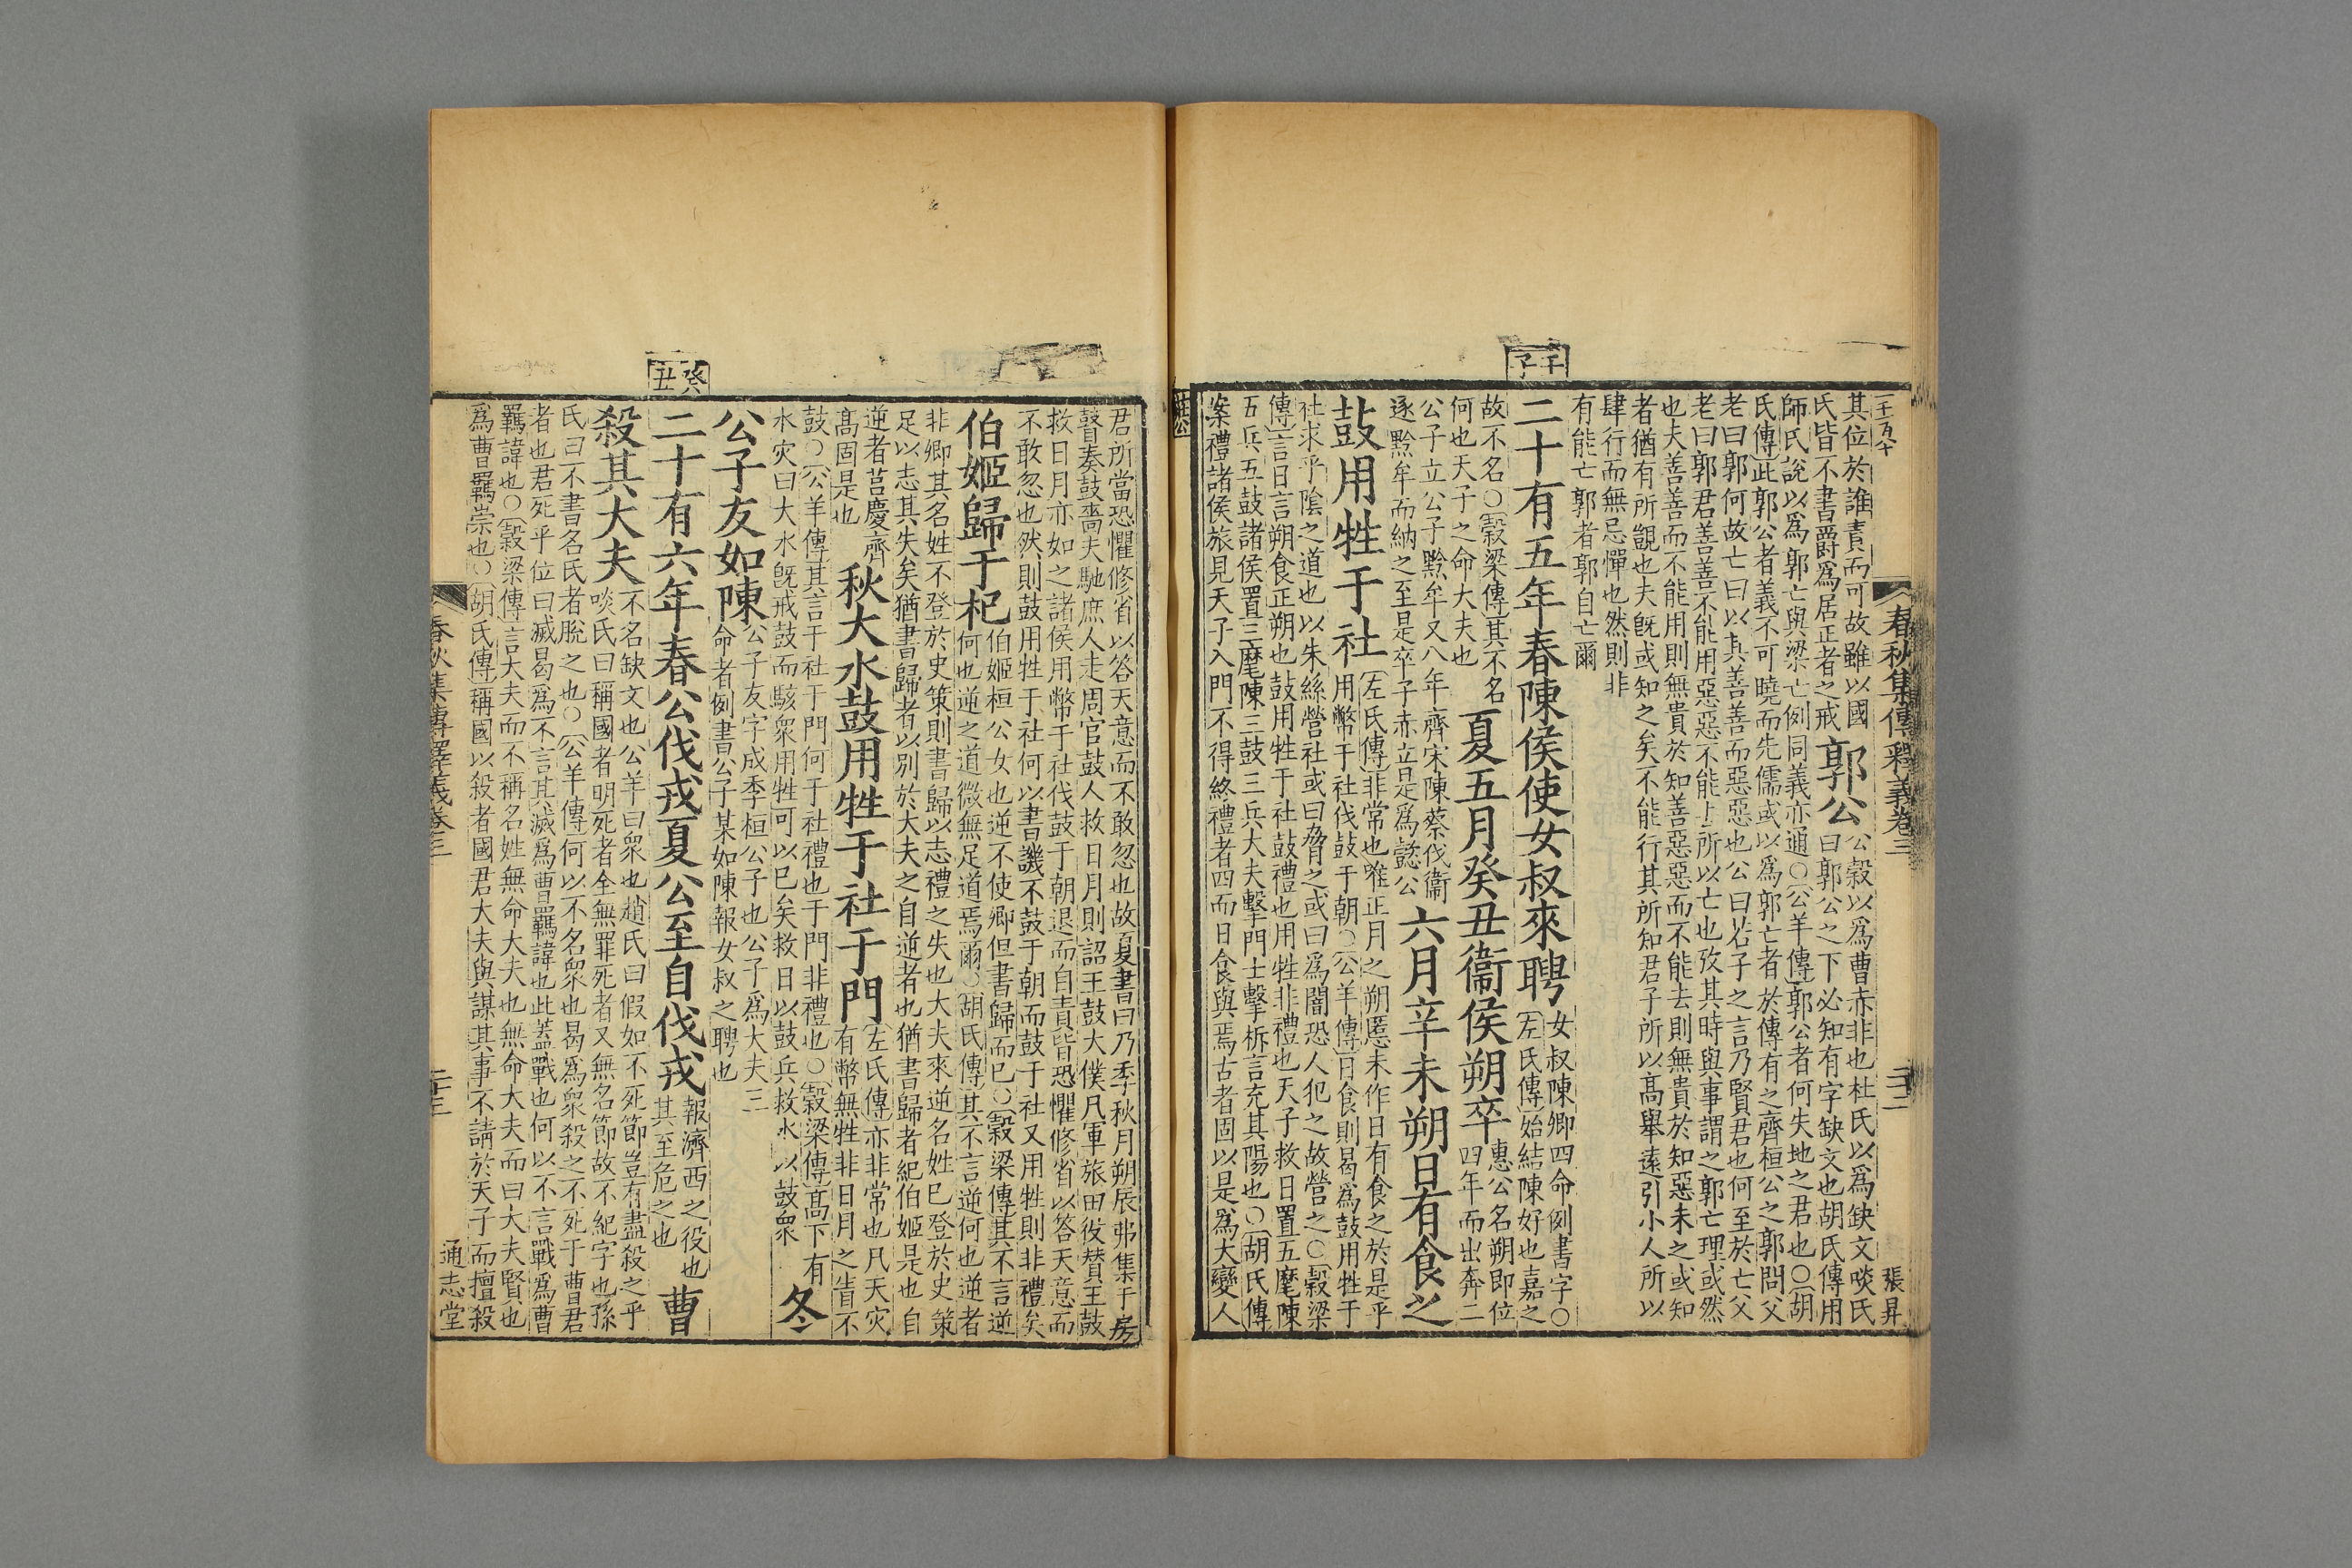 春秋集傳釋義卷三
二十二
張昇
其位於誰責而可故雖以國
氏皆不書爵爲居正者之戒
郭公
公穀以爲曹赤非也杜氏以爲缺文啖氏
曰郭公之下必知有字缺文也胡氏傳用
師氏說以爲郭亡與梁亡例同義亦通○公羊傳郭公者何失地之君也○胡
氏傳此郭公者義不可曉而先儒或以爲郭亡者於傳有之齊桓公之郭問父
老曰郭何故亡曰以其善善而惡惡也公曰若子之言乃賢君也何至於亡父
老曰郭君善善不能用惡惡不能去所以亡也攷其時與事謂之郭亡理或然
也夫善善而不能用則無貴於知善惡惡而不能去則無貴於知惡未之或知
者猶有所覬也夫旣或知之矣不能行其所知君子所以高舉遠引小人所以
肆行而無忌憚也然則非
有能亡郭者郭自亡爾
壬子
二十有五年春陳侯使女叔來聘
女叔陳卿四命例書字○
左氏傳始結陳好也嘉之
故不名○穀梁傳其不名
何也天子之命大夫也
夏五月癸丑衞侯朔卒
惠公名朔即位
四年而出奔二
公子立公子黔牟又八年齊宋陳蔡伐衞
逐黔牟而納之至是卒子赤立是爲懿公
六月辛未朔日有食之
鼓用牲于社
左氏傳非常也唯正月之朔慝未作日有食之於是乎
用幣于社伐鼓于朝○公羊傳日食則曷爲鼓用牲于
社求乎陰之道也以朱絲營社或曰脅之或曰爲闇恐人犯之故營之○穀梁
傳言日言朔食正朔也鼓用牲于社鼓禮也用牲非禮也天子救日置五麾陳
五兵五鼓諸侯置三麾陳三鼓三兵大夫擊門士擊柝言充其陽也○胡氏傳
案禮諸侯旅見天子入門不得終禮者四而日食與焉古者固以是爲大變人
莊公
君所當恐懼修省以答天意而不敢忽也故夏書曰乃季秋月朔辰弗集于房
瞽奏鼓嗇夫馳庶人走周官鼓人救日月則詔王鼓大僕凡軍旅田役賛王鼓
救日月亦如之諸侯用幣于社伐鼓于朝退而自責皆恐懼修省以答天意而
不敢忽也然則鼓用牲于社何以書譏不鼓于朝而鼓于社又用牲則非禮矣
伯姬歸于杞
伯姬桓公女也逆不使卿但書歸而已○穀梁傳其不言逆
何也逆之道微無足道焉爾○胡氏傳其不言逆何也逆者
非卿其名姓不登於史策則書歸以志禮之失也大夫來逆名姓已登於史策
足以志其失矣猶書歸者以別於大夫之自逆者也猶書歸者紀伯姬是也自
逆者莒慶齊
高固是也
秋大水鼓用牲于社于門
左氏傳亦非常也凡天灾
有幣無牲非日月之眚不
鼓○公羊傳其言于社于門何于社禮也于門非禮也○穀梁傳高下有
水灾曰大水旣戒鼓而駭衆用牲可以已矣救日以鼓兵救水以鼓衆
冬
公子友如陳
公子友字成季桓公子也公子爲大夫三
命者例書公子某如陳報女叔之聘也
癸丑
二十有六年春公伐戎夏公至自伐戎
報濟西之役也
其至危之也
曹
殺其大夫
不名缺文也公羊曰衆也趙氏曰假如不死節豈有盡殺之乎
啖氏曰稱國者明死者全無罪死者又無名節故不紀字也孫
氏曰不書名氏者脫之也○公羊傳何以不名衆也曷爲衆殺之不死于曹君
者也君死乎位曰滅曷爲不言其滅爲曹羈諱也此蓋戰也何以不言戰爲曹
羈諱也○穀梁傳言大夫而不稱名姓無命大夫也無命大夫而曰大夫賢也
爲曹羈崇也○胡氏傳稱國以殺者國君大夫與謀其事不請於天子而擅殺
春秋集傳釋義卷三
二十三
通志堂